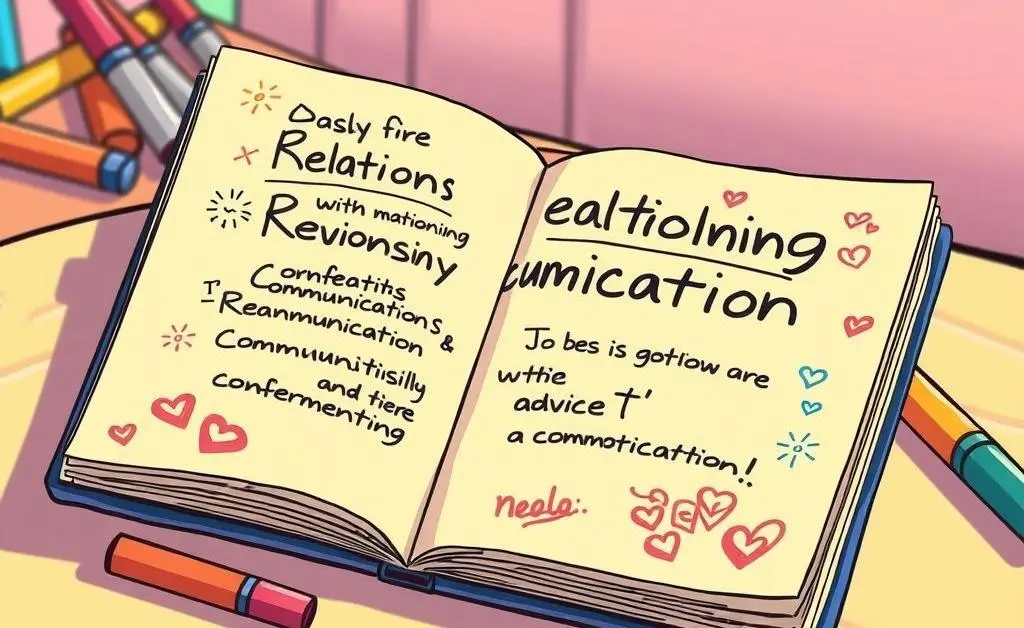 Dasly fire
Relations
with mationing
Revionsiny
Cornfeatiths
Communications
T' Reanmunication &
Commuunitisilly
and tiere
confermenting
ealtiolning
cumication
Jo bes is gotlow are
wthie
advice t'
a commoticattion!
neala:.